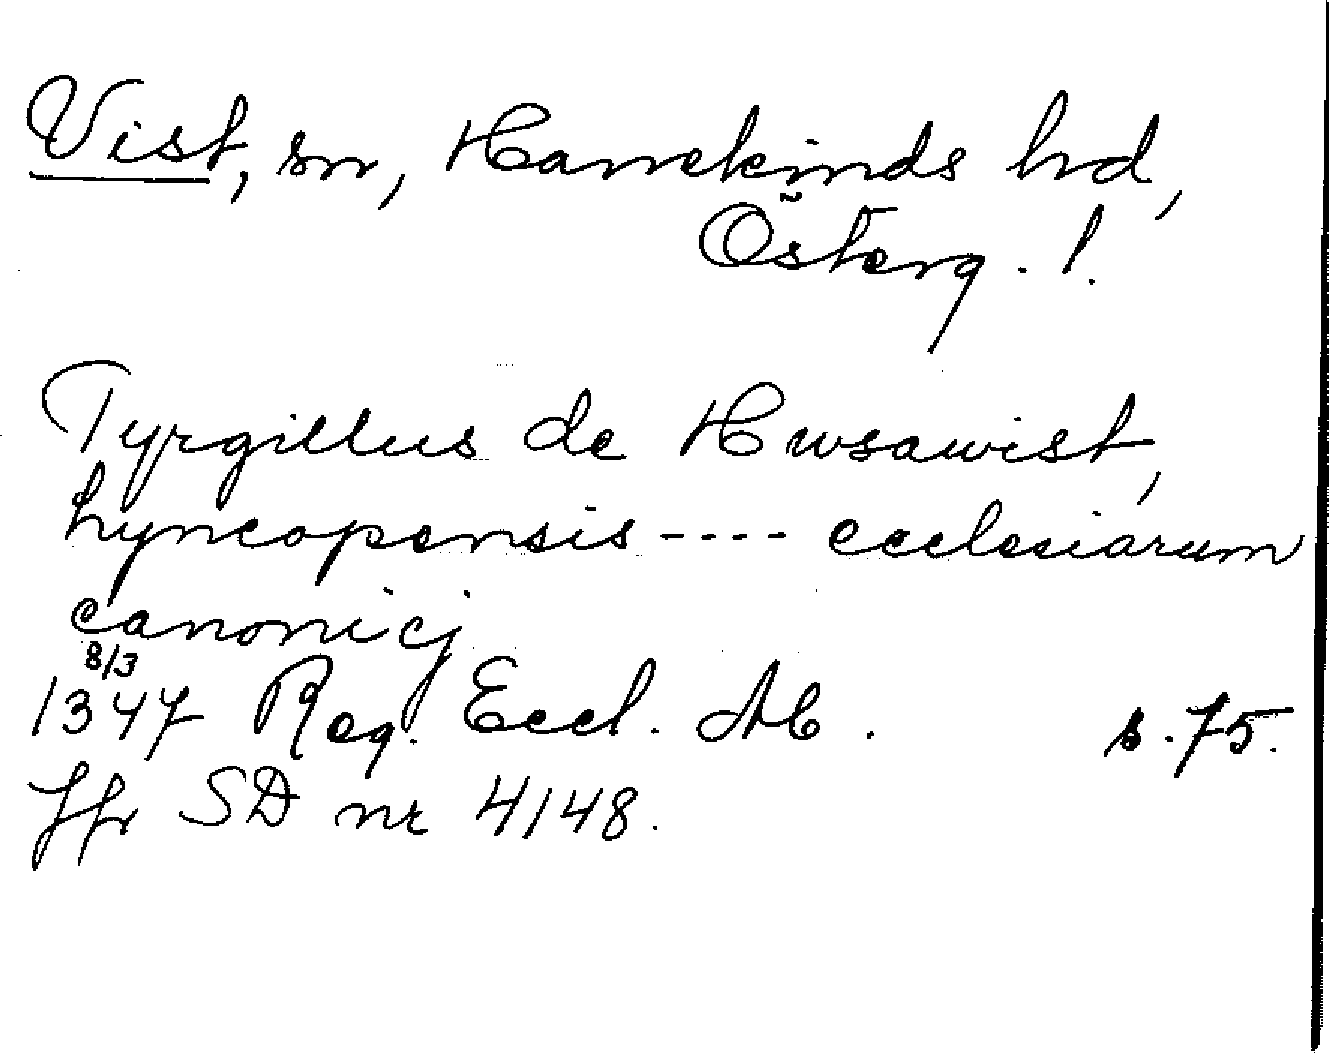 Vist, sn, Hanekinds hd,
Österg. l.
Tyrgillus de Hwsawist,
hyncopensis ---- ecclesiarum
canonicj
8/3
1347 Reg. Eccl. AC. s. 75.
Jfr SD nr 4148.